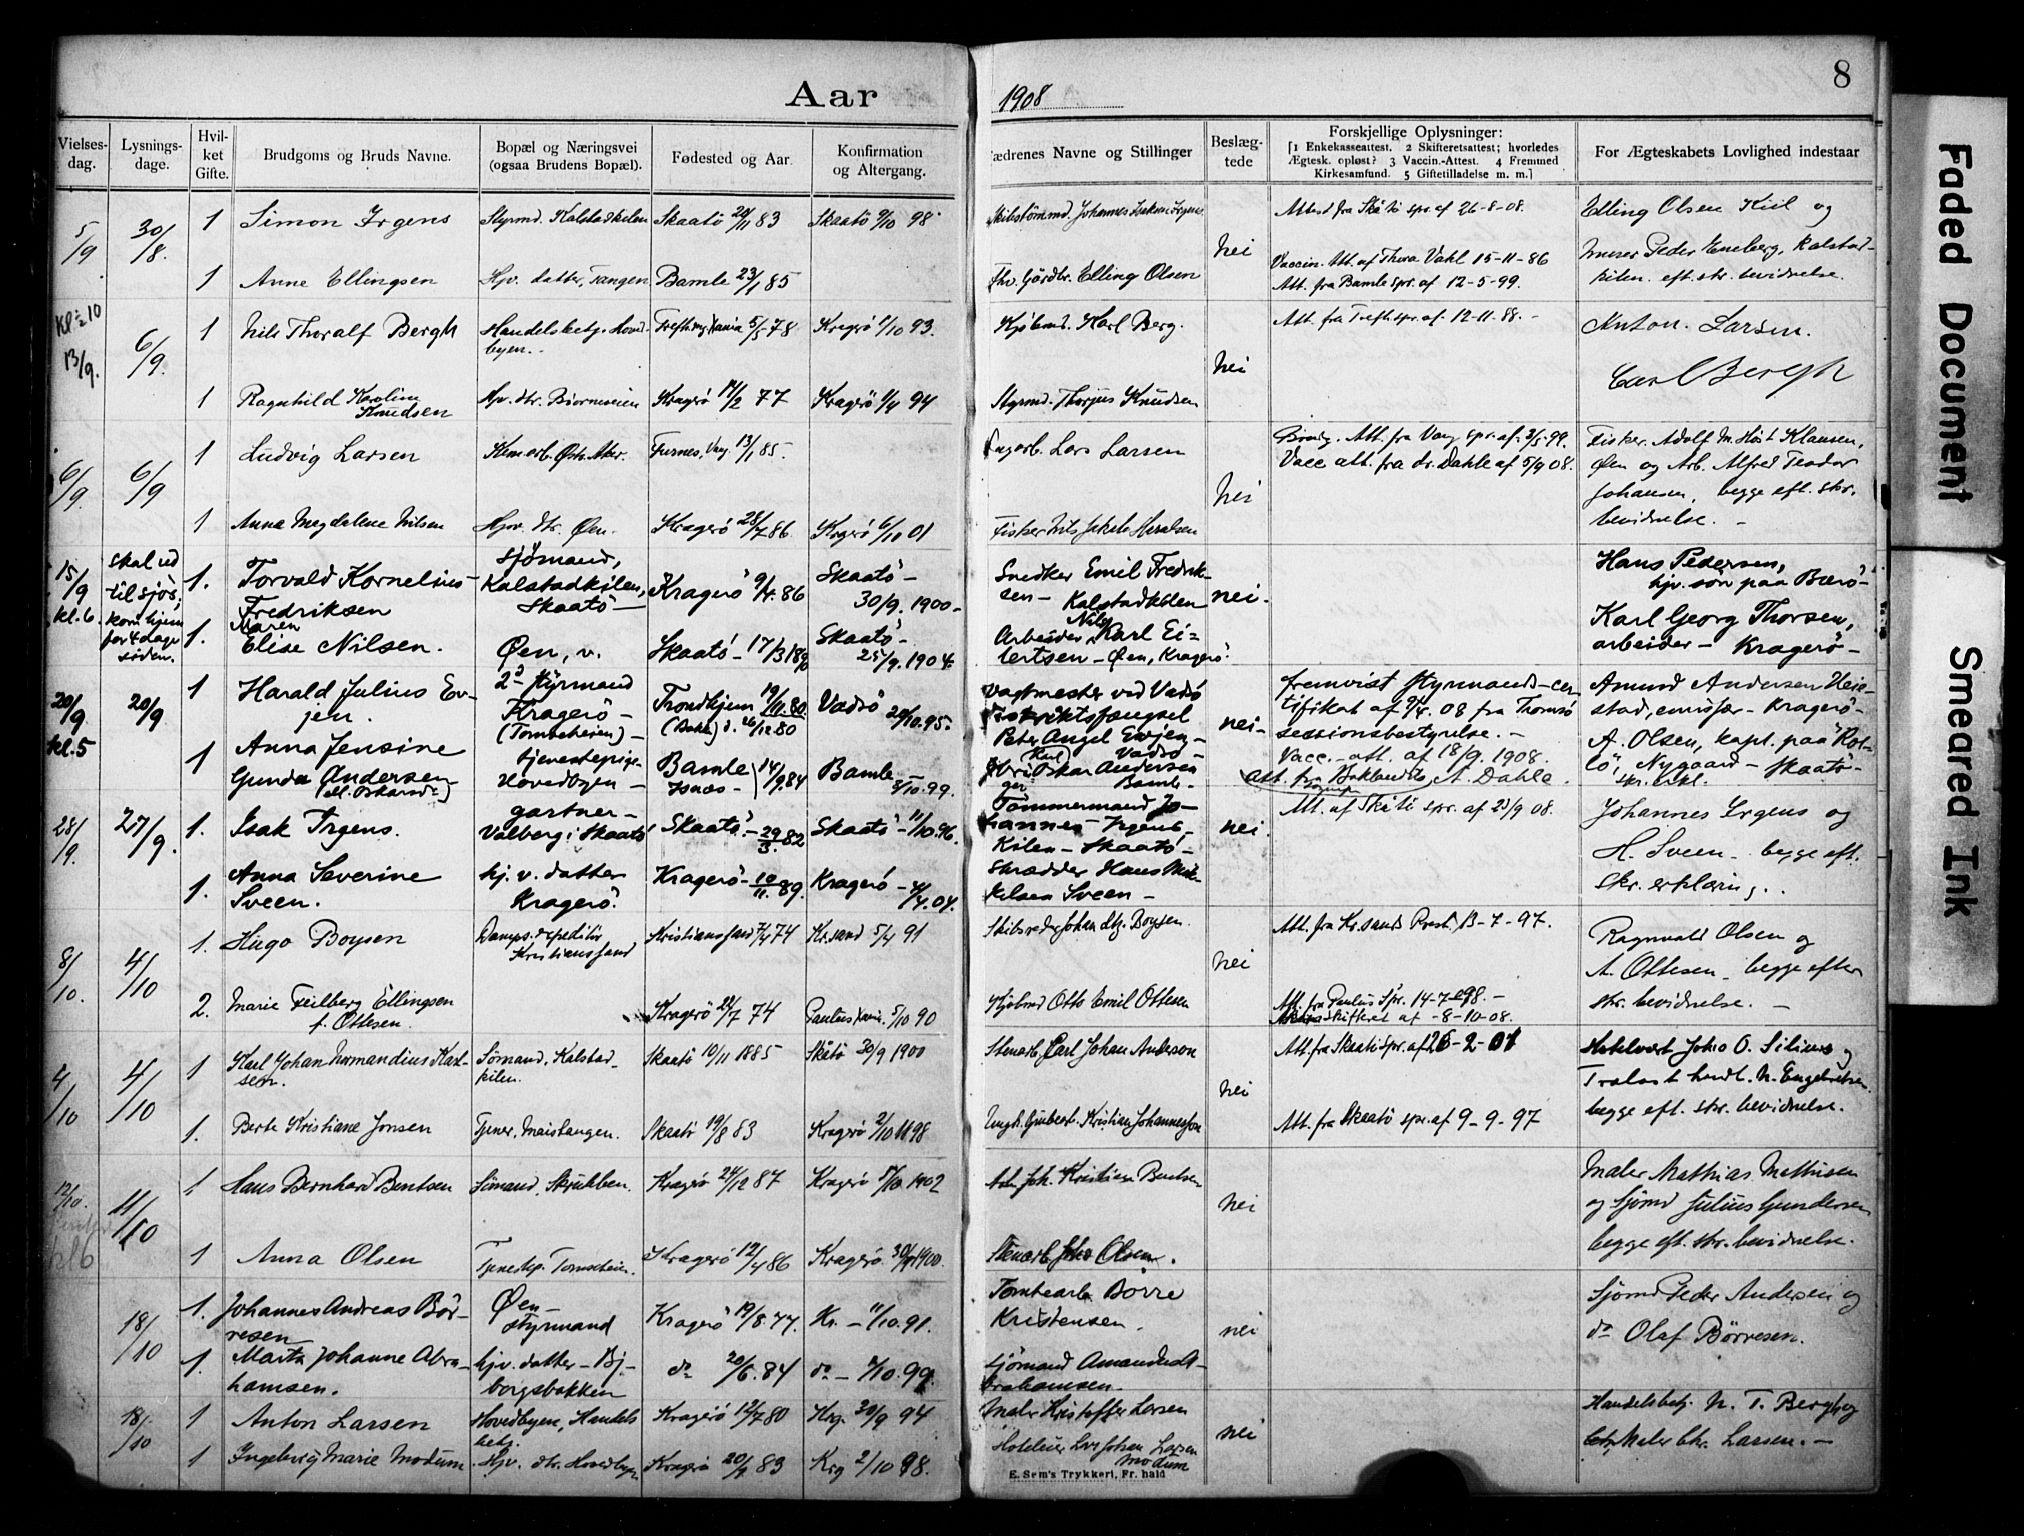 Aar
1908
8
Vielses-dag.
Lysnings-dage.
Hvil-ket Gifte.
Brudgoms og Bruds Navne.
Bopæl og Næringsvei (ogsaa Brudens Bopæl).
Fødested og Aar.
Konfirmation og Altergang.
ædrenes Navne og Stillinger
Beslæg-tede
Forskjellige Oplysninger:
[1 Enkekasseattest. 2 Skifteretsattest; hvorledes
Ægtesk. opløst? 3 Vaccin.-Attest. 4 Fremmed
Kirkesamfund. 5 Giftetilladelse m. m.]
For Ægteskabets Lovlighed indestaar
5/9 30/8 1 Simon Irgens Styrmd. Kalstadkilen Skaatö 20/11 83 Skaatö 9/10 98 Johannes Isaksen Irgens nei Attest fra Skåtö spr. af 26-8-08. Elling Olsen Kiil og
Vaccin. Att. af Thora Vahl 15-11-86 Peder Eneberg, Kalstad-
1 Anne Ellingsen Hjv. datter, Tangen Bamle 23/1 85 Elling Olsen Att. fra Bamle spr. af 12-5-99. kilen eft. skr. bevidnelse.
Kl ½ 10
13/9. 6/9. 1 Nils Thoralf Bergh Handelsbetj. Hoved-
byen. 5/5 78 Kragerö 1/10 93. Kjöbmd. Karl Berg. nei Att. fra Trefk. spr. af 12-11-88. - Anton. Larsen.
Carl Bergh
1 Ragnhild Karoline
Knudsen Hjv. dtr. Bjorneveien Kragerö 14/2 77 Kragerö 1/4 94 Styrmd. Thorjus Knudsen
6/9. 6/9 1 Ludvig Larsen Furnes, Vang 13/1 85. Lars Larsen nei Att. fra Vang spr. af 3/5-99. Fisker. Adolf M. Höst Klausen,
Vacc att. fra dr. Dahle af 5/9 08. Øen og Arb. Alfred Teodor
Johansen, begge eft. skr.
1 Anna Magdalene Nilsen Hjv. dtr. Øen. Kragerö 28/7 86. Kragerö 6/10 01 Fisker Nils Jakob bevidnelse. -
15/9
kl. 6. skal ud
til sjøs,
kom hjem
for 4 dage
siden. 1. Torvald Kornelius
Fredriksen Sjömand,
Kalstadkilen,
Skaatö - Kragerö 9/4. 86 Skaatö -
30/9. 1900 - Snedker Emil Fredrik-
sen - Kalstadkilen nei. Hans Pedersen,
hjv. sön paa Bærö -
1. Maren
Elise Nilsen. Øen, v. Skaatö - 17/3 1890 Skaatö -
25/9. 1904. Arbeider Nils Karl Ei-
lertsen - Øen, Kragerö. Karl Georg Thorsen,
arbeider - Kragerö -
20/9
kl. 5 20/9 1 Harald Julius Ev-
jen. 2d Styrmand
Kragerö -
(Tomteheien) - Trondhjem 19/11. 80
(Bakl.) d. 26/12. 80 Vadsö 20/10. 95. Vagtmester ved Vadsö
Distriktsfængsel
Peter Angel Evjen -
Vadsö - nei - fremvist Styrmands-cer-
tifikat af 9/4. 08 fra Tromsö
sessionsbestyrelse. -
Vacc. - att. af 18/9. 1908.
A. Dahle. Amund Andersen Heie-
stad, emissær - Kragerö -
1 Anna Jensine
Gunda Andersen tjenestepige
Hovedbyen - Bamle
14/9. 84 Bamle
8/10. 99. Karl
Oskar Andersen
Bamle - A. Olsen, kapt. paa "Kol-
lö", Nygaard - Skaatö -
skr. erkl.
28/9. 27/9. 1. Isak Irgens. gartner -
Valberg i Skaatö Skaatö - 29/3. 82 Skaatö - 11/10. 96. Tömmermand Jo-
hannes Irgens,
Kilen - Skaatö - nei. Att. af Skåtö spr. af 23/9 08. Johannes Irgens og
1. Anna Severine
Sveen. hj. v. datter
Kragerö. Kragerö - 10/11. 89. Kragerö - 4/4. 04. Skrædder Hans Mik-
kelsen Sveen - H. Sveen - begge eft.
skr. erklæring.
8/10. 4/10 1. Hugo Boysen Damps. expeditör
Kristianssand Kristianssand 7/4 74 Kr.sand 5/4 91 Skibsreder Johan Boysen. nei Att. fra Kr.sands Prest. 13-7-97. Ragnvald Olsen og
A. Ottesen - begge efter
2. Marie Feilberg Ellingsen
f. Ottesen. Kragerö 22/7 74 Paulus Kania. 5/10 90 Kjöbmd Otto Emil Ottesen Att. fra Paulus spr. 14-7-98. -
skifteret af -8-10-08. skr. bevidnelse. -
4/10 4/10 1 Karl Johan Normandius Karl-
sen. Sömand, Kalstad-
kilen. Skaatö 10/11 1885 Skåtö 30/9 1900 Stenarb. Carl Johan Anderson nei Att. fra Skaatö spr. af 26-2-01 Hotelvært John O. Silius og
Tralast handl. N. Engebretsen
1. Berte Kristiane Jonsen Tjener. Maistangen. Skaatö 19/8 83 Kragerö 2/10 1898 Kristian Johannesson Att. fra Skaatö spr. af 9-9-97 begge eft. skr. bevidnelse.
12/10.
kl 6 11/10 1 Hans Bernhard Bentsen Sömand, Skrubben. Kragerö 24/12 87 Kragerö 5/10. 1902 Joh. Kristian Bentsen nei Maler Mathias Mathisen
og Sjömd Julius Gundersen
1 Anna Olsen Tjenestep. Tomteheien. Kragerö 12/4 86 Kragerö. 30/9 1900. Stenarb. John Olsen. begge eft. skr. bevidnelse.
18/10 1. Johannes Andreas Bör-
resen Øen -
Styrmand Kragerö 19/8. 77. Kr. - 11/10. 91. Tomtearb Börre
Kristensen. nei Sjömd Peder Andersen og
do Olaf Börresen.
1. Marta Johanne Abra-
hamsen. hjv. datter - Bj-
borgsbakken do 20/6. 84 do - 1/10. 99. Sjömand Amandus A-
brahamsen.
18/10 1 Anton Larsen Hovedbyen, Handels
betj. Kragerö 12/7 80 Krg. 30/9 94 Maler Kristoffer Larsen nei Handelsbetj. N. T. Bergh og
Maler Chr. Larsen. -
1 Ingeborg Marie Modum Hjv. dtr. Hovedbyen Kragerö 20/9 83 Krg 2/10 98. Johan Larsen
Modum
E. Sem's Trykkeri, Fr. hald
Faded Document
Smeared Ink